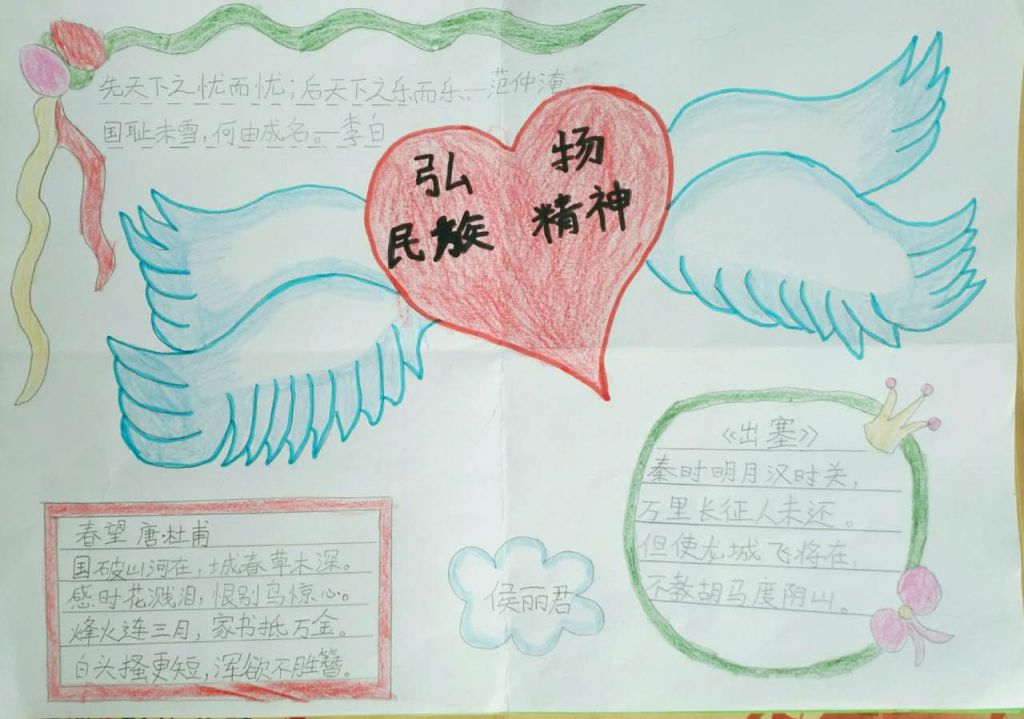 先天下之忧而忧；后天下之乐而乐。—范仲淹
国耻未雪，何由成名。—李白
弘 扬
民族 精神
《出塞》
秦时明月汉时关，
万里长征人未还。
但使龙城飞将在，
不教胡马度阴山。
春望 唐·杜甫
国破山河在，城春草木深。
感时花溅泪，恨别鸟惊心。
烽火连三月，家书抵万金。
白头搔更短，浑欲不胜簪。
侯丽君